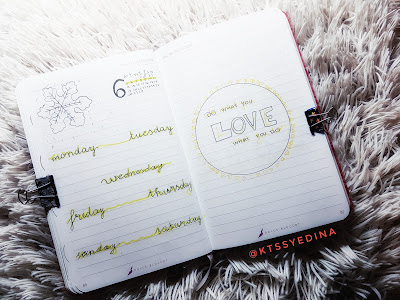 6
monday tuesday
wednesday
friday thursday
sunday saturday
DO WHAT YOU
LOVE
WHAT YOU DO
@KTSSYEDINA